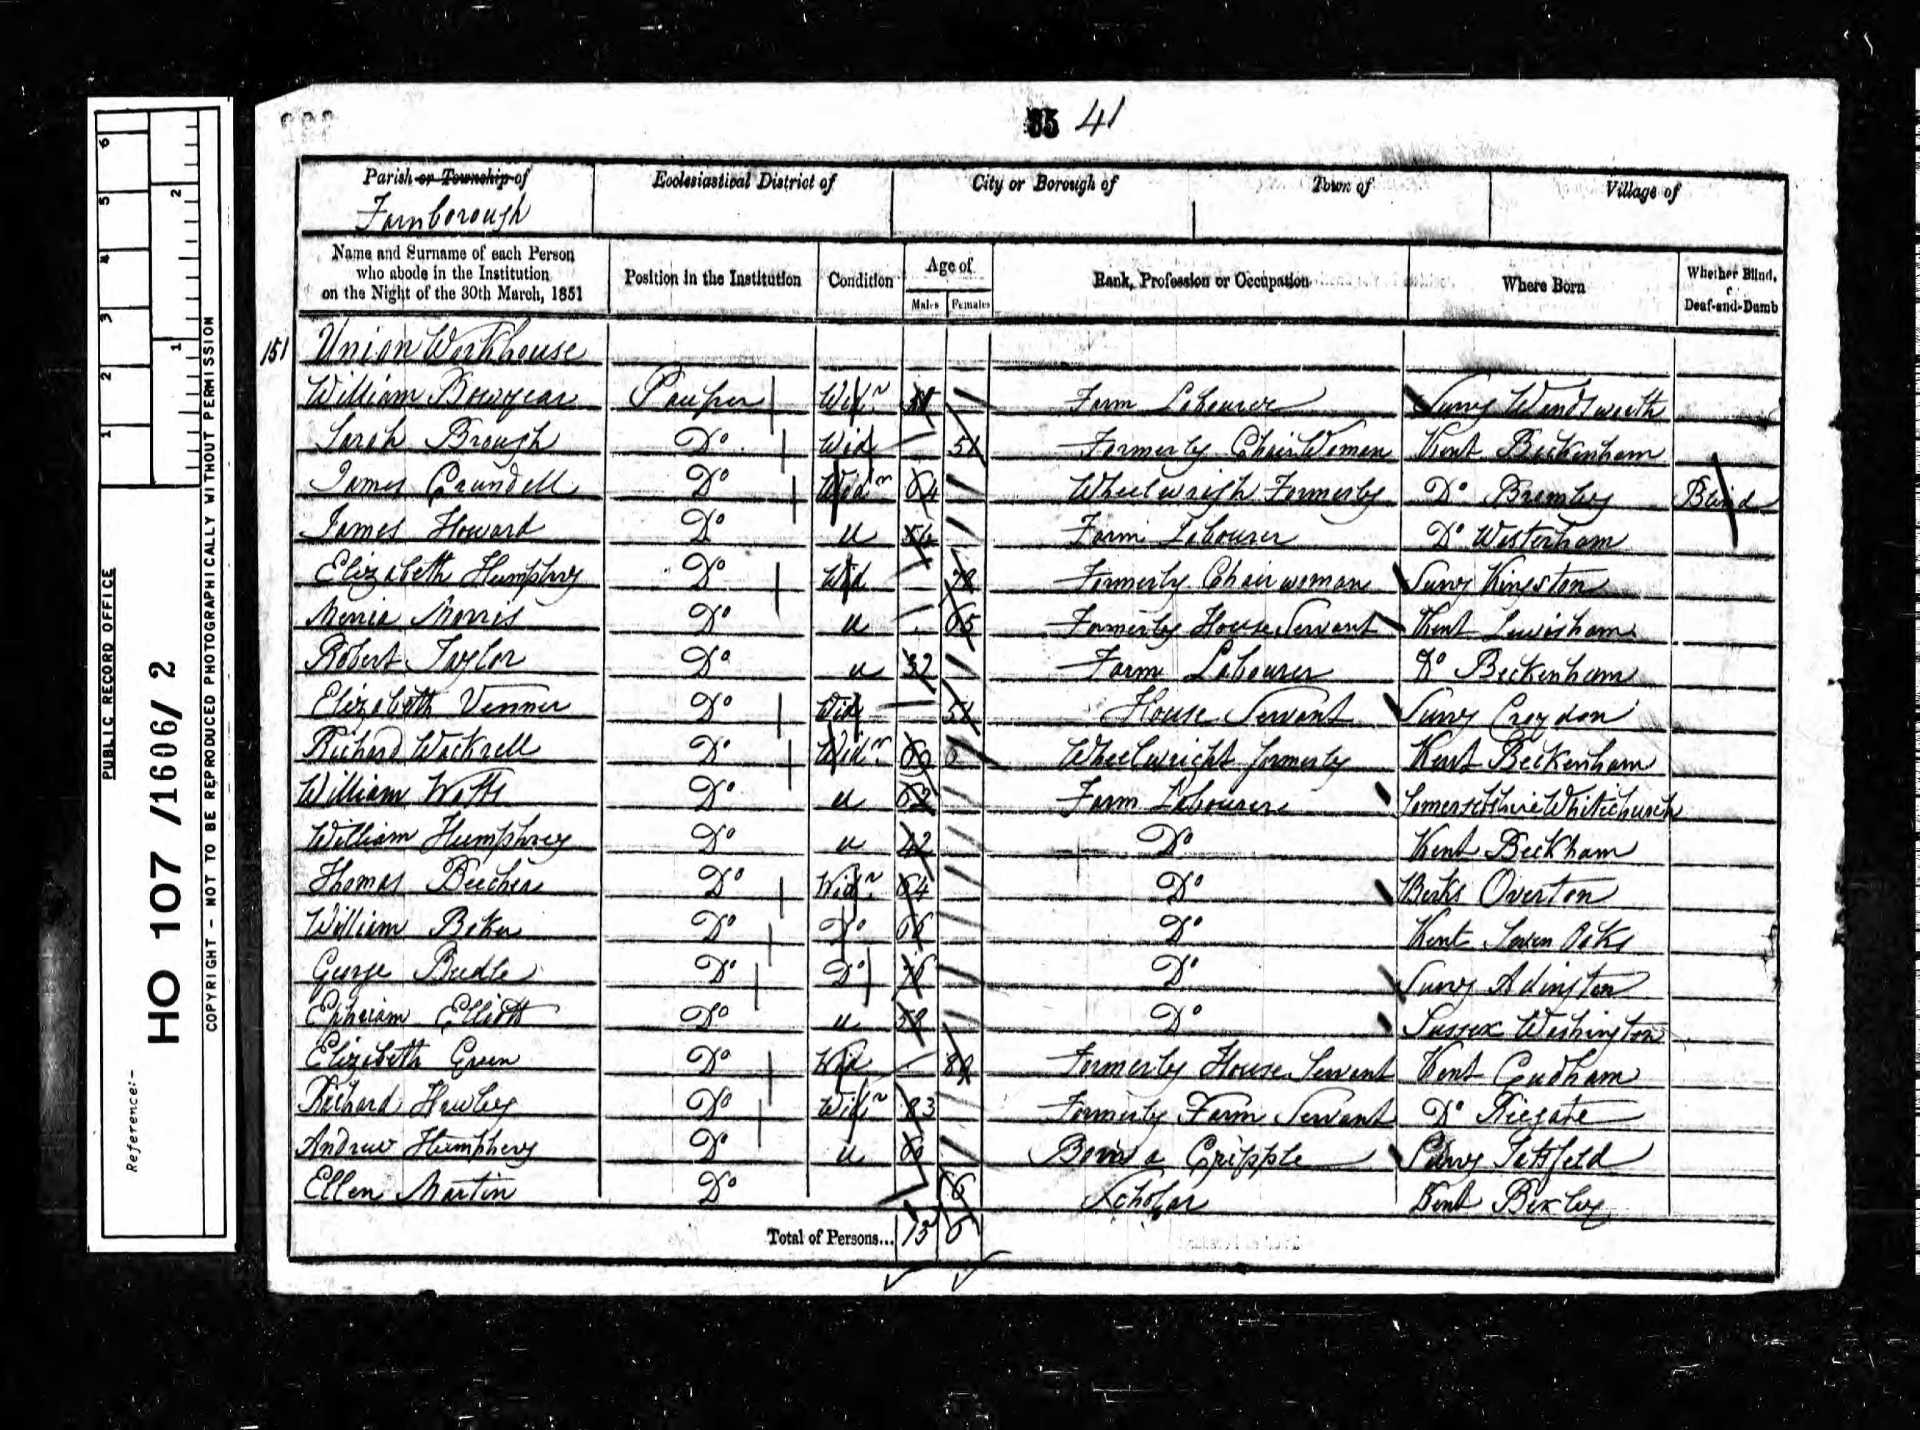 35 41
Parish or Township of Ecclesiastical District of City or Borough of Town of Village of
Farnborough
Name and Surname of each Person who abode in the Institution on the Night of the 30th March, 1851 Position in the Institution Condition Age of Males Females Rank, Profession or Occupation Where Born Whether Blind, or Deaf-and-Dumb
151 Union Workhouse
William Bowyear Pauper Widr Farm Labourer Surry Wandsworth
Sarah Brough Do Wid 51 Formerly Chair Woman Kent Beckenham
James Crundell Do Widr 64 Wheelwrigh Formerly Do Bromley Blind
James Howard Do u 56 Farm Labourer Do Westerham
Elizabeth Humphry Do Wid 78 Formerly Chairwoman Surry Kingston
Morris Do u 65 Formerly House Servant Kent Lewisham
Robert Taylor Do u 32 Farm Labourer Do Beckenham
Elizabeth Venner Do Wid 51 House Servant Surry Croydon
Richard Wacknell Do Widr Wheelwright formerly Kent Beckenham
William Watts Do u 62 Farm Labourer Somersetshire Whitchurch
William Humphrey Do u 42 Do Kent Beckham
Thomas Beecher Do Widr 64 Do Berks Overton
William Baker Do Do 66 Do Kent Seven Oaks
George Budle Do Do 76 Do Surry Adington
Ephraim Elliott Do u 52 Do Sussex Washington
Elizabeth Green Do Wid Formerly House Servant Kent Cudham
Richard Hawley Do Widr 83 Formerly Farm Servant Do Riegate
Andrew Humphery Do u 60 Born a Cripple Surry Tatsfeld
Ellen Martin Do 6 Scholar Kent Bexley
Total of Persons... 13 6
PUBLIC RECORD OFFICE
Reference:-
HO 107 /1606/ 2
COPYRIGHT - NOT TO BE REPRODUCED PHOTOGRAPHICALLY WITHOUT PERMISSION
1 2 3 4 5 6
1 2